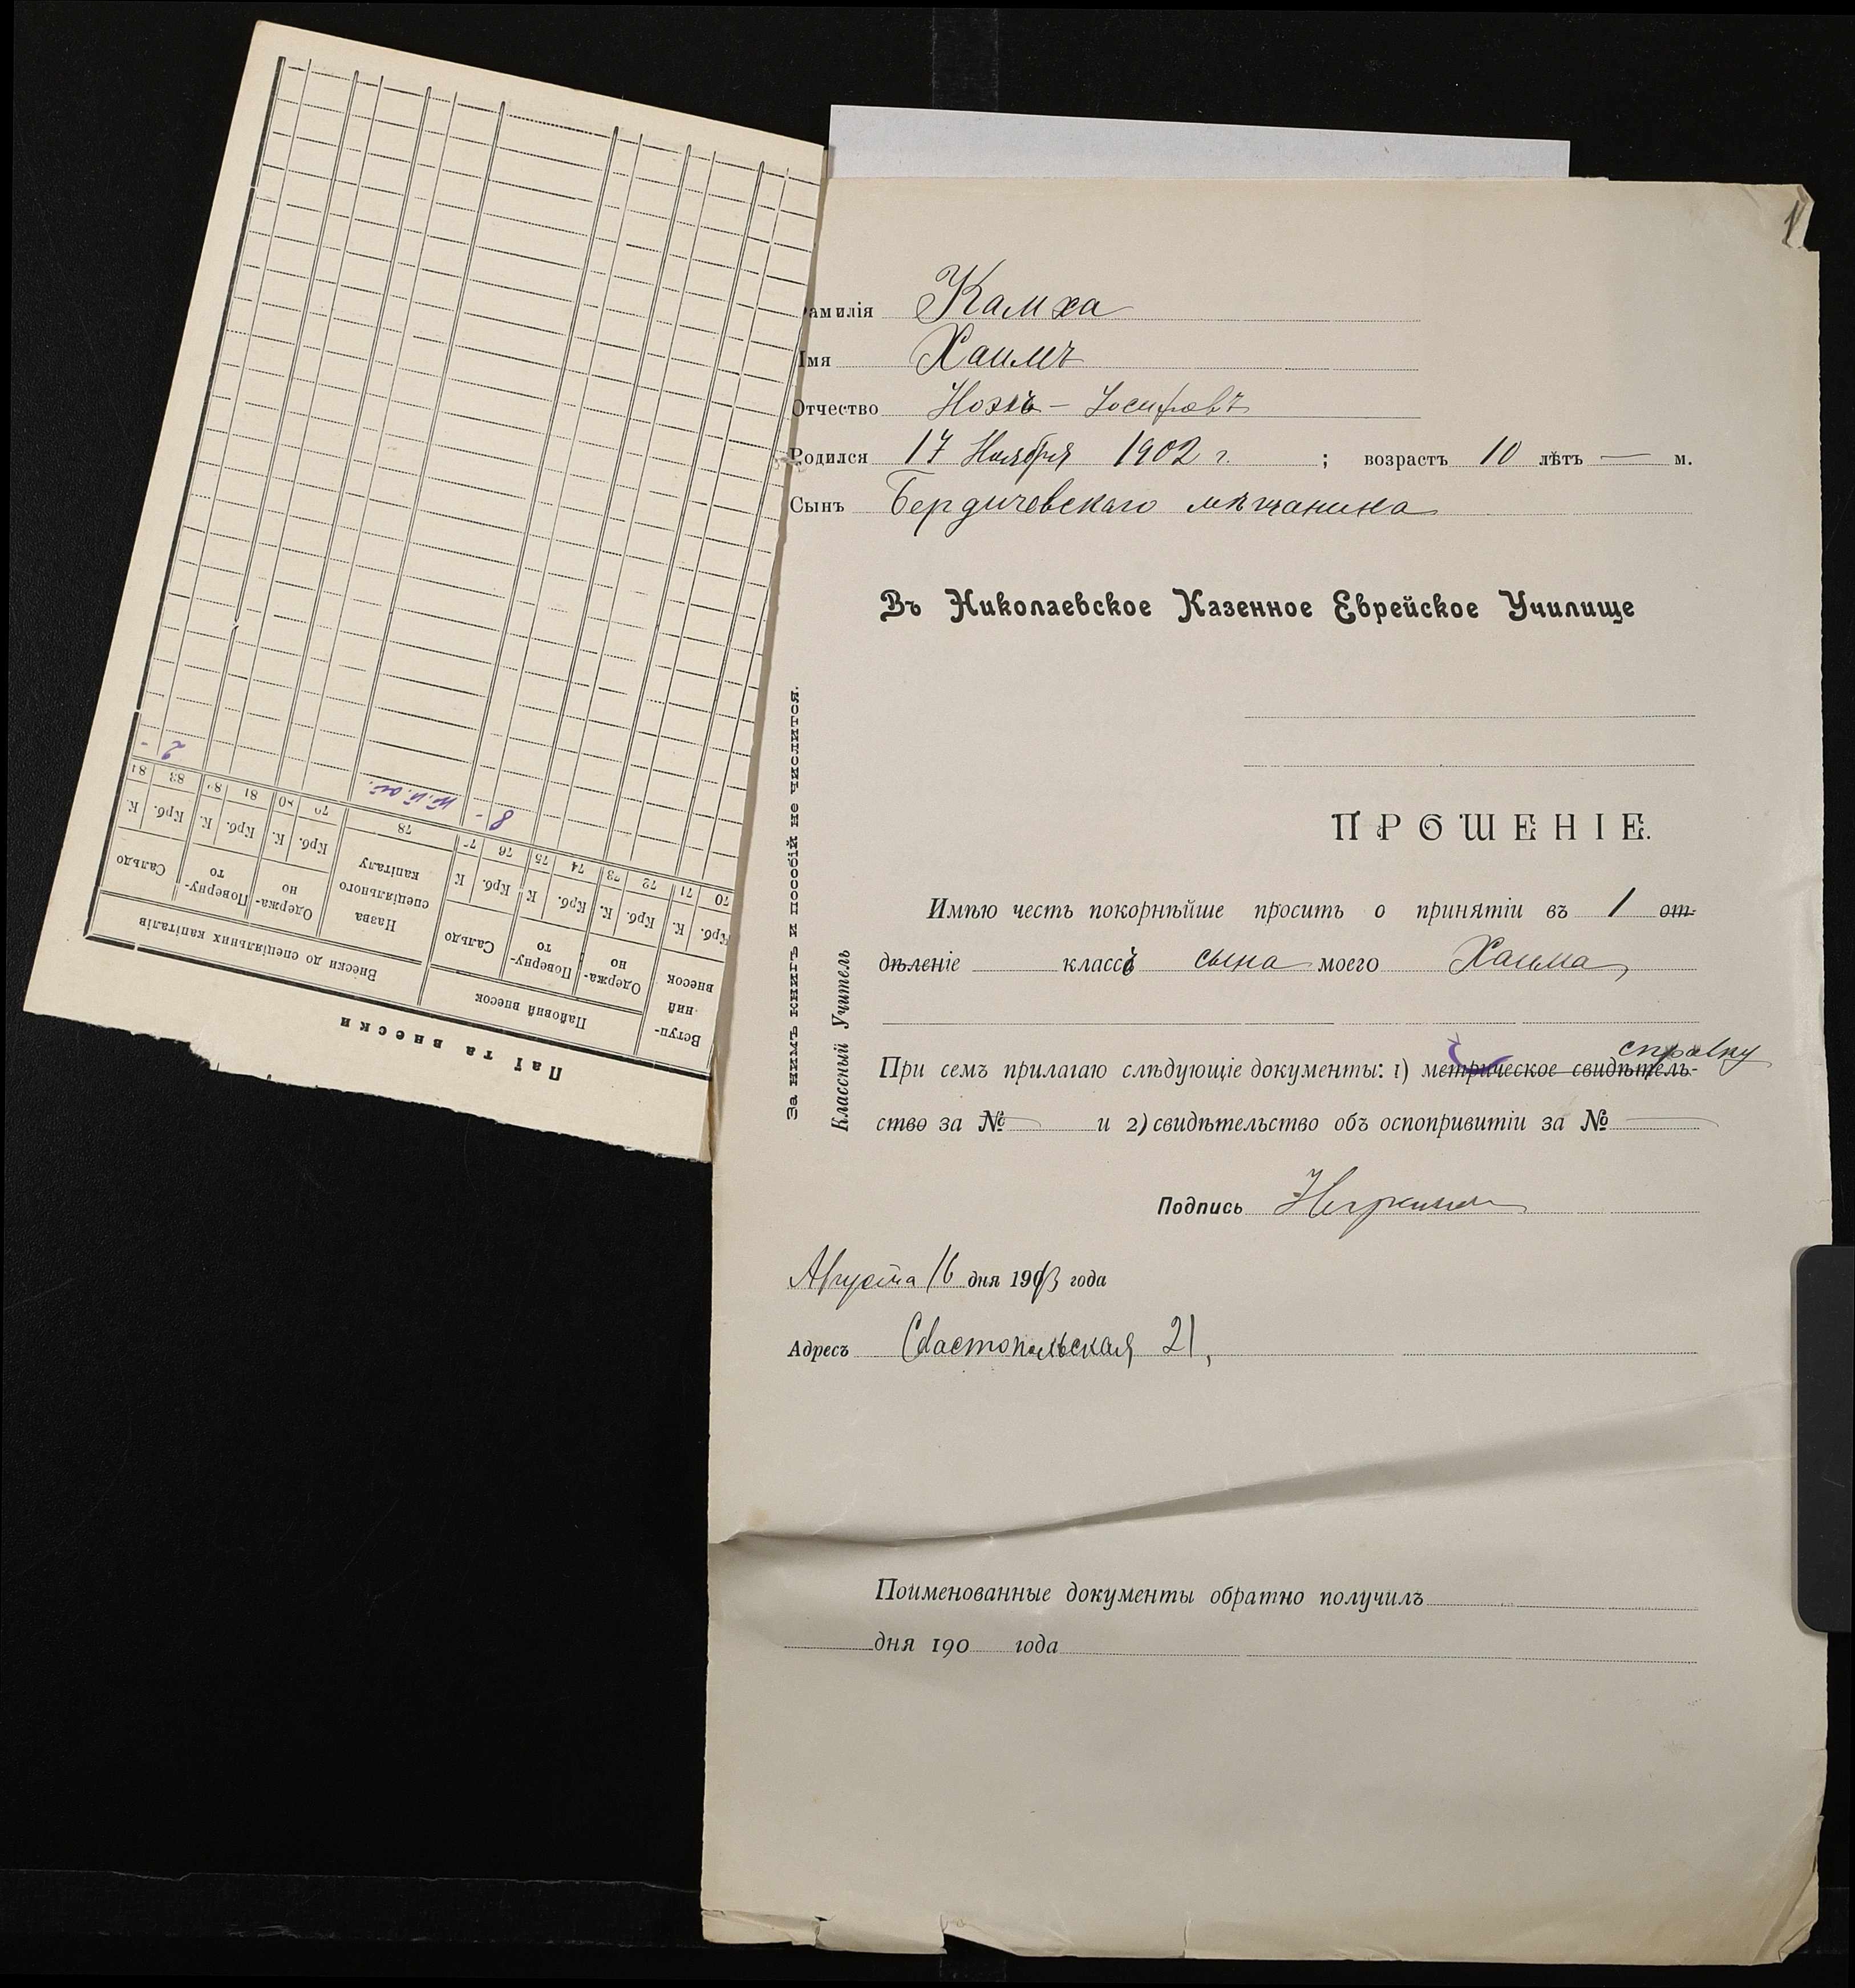 1
Фамилія Камха
Имя Хаимъ
Отчество Іосифовъ
Родился 17 Ноября 1902 г. ; возрастъ 10 лѣтъ — м.
Сынъ Бердичевскаго мѣщанина
Въ Николаевское Казенное Еврейское Училище
ПРОШЕНІЕ.
Имѣю честь покорнѣйше просить о принятіи въ 1 от-
дѣленіе классъ сына моего Хаима,
При семъ прилагаю слѣдующіе документы: 1) метрическое свидѣтель- справку
ство за № и 2) свидѣтельство объ оспопривитіи за №
Подпись
Августа 16 дня 1913 года
Адресъ Сѣвастопольская 21,
Поименованные документы обратно получилъ
дня 190 года
За нимъ книгъ и пособій не числится.
Классный Учитель
Паї та внески
Вступ-
ний
внесок
Пайовий внесок
Внески до спеціяльних капіталів
Одержа-
но
Поверну-
то
Сальдо
Назва
спеціяльного
капіталу
Одержа-
но
Поверну-
то
Сальдо
Крб. К. Крб. К. Крб. К Крб. К Крб. К. Крб. К. Крб. К.
70 71 72 73 74 75 76 77 78 79 80 81 82 83 84
8 - 2 -